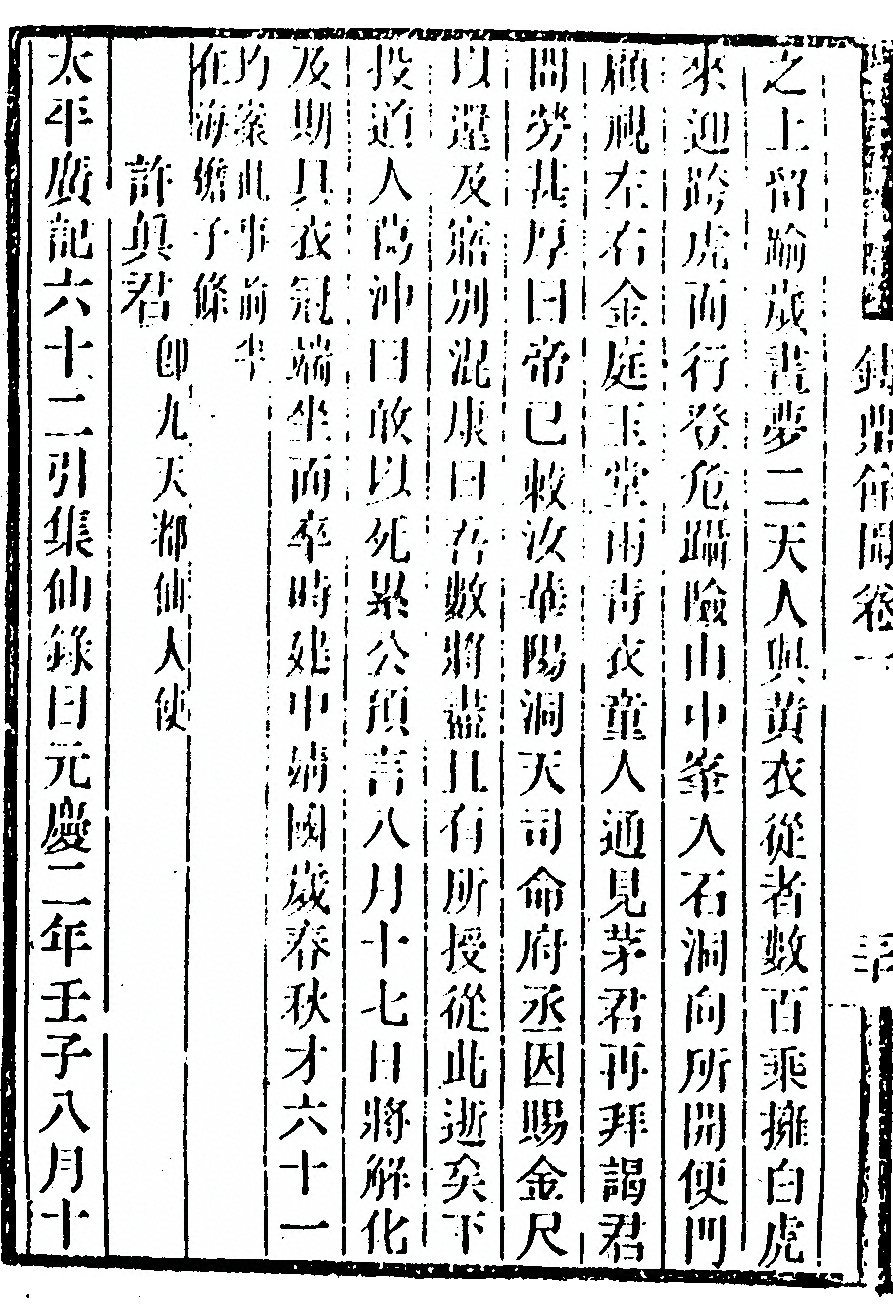 之上留踰歲晝夢二天人與黃衣從者數百乘擁白虎
來迎跨虎而行登危躡險山中峯入石洞向所開便門
顧視左右金庭玉堂兩靑衣童入通見茅君再拜謁君
問勞甚厚曰帝已敕汝華陽洞天司命府丞因賜金尺
以還及寤別混康曰吾數將盡且有所授從此逝矣下
投道人葛沖曰敢以死累公預言八月十七日將解化
及期具衣冠端坐而卒時建中靖國歲春秋才六十一
灼案此事前半
在海蟾子條
許眞君 卽九天都仙大使
太平廣記六十二引集仙錄曰元慶二年壬子八月十
鑄鼎餘聞卷一
三